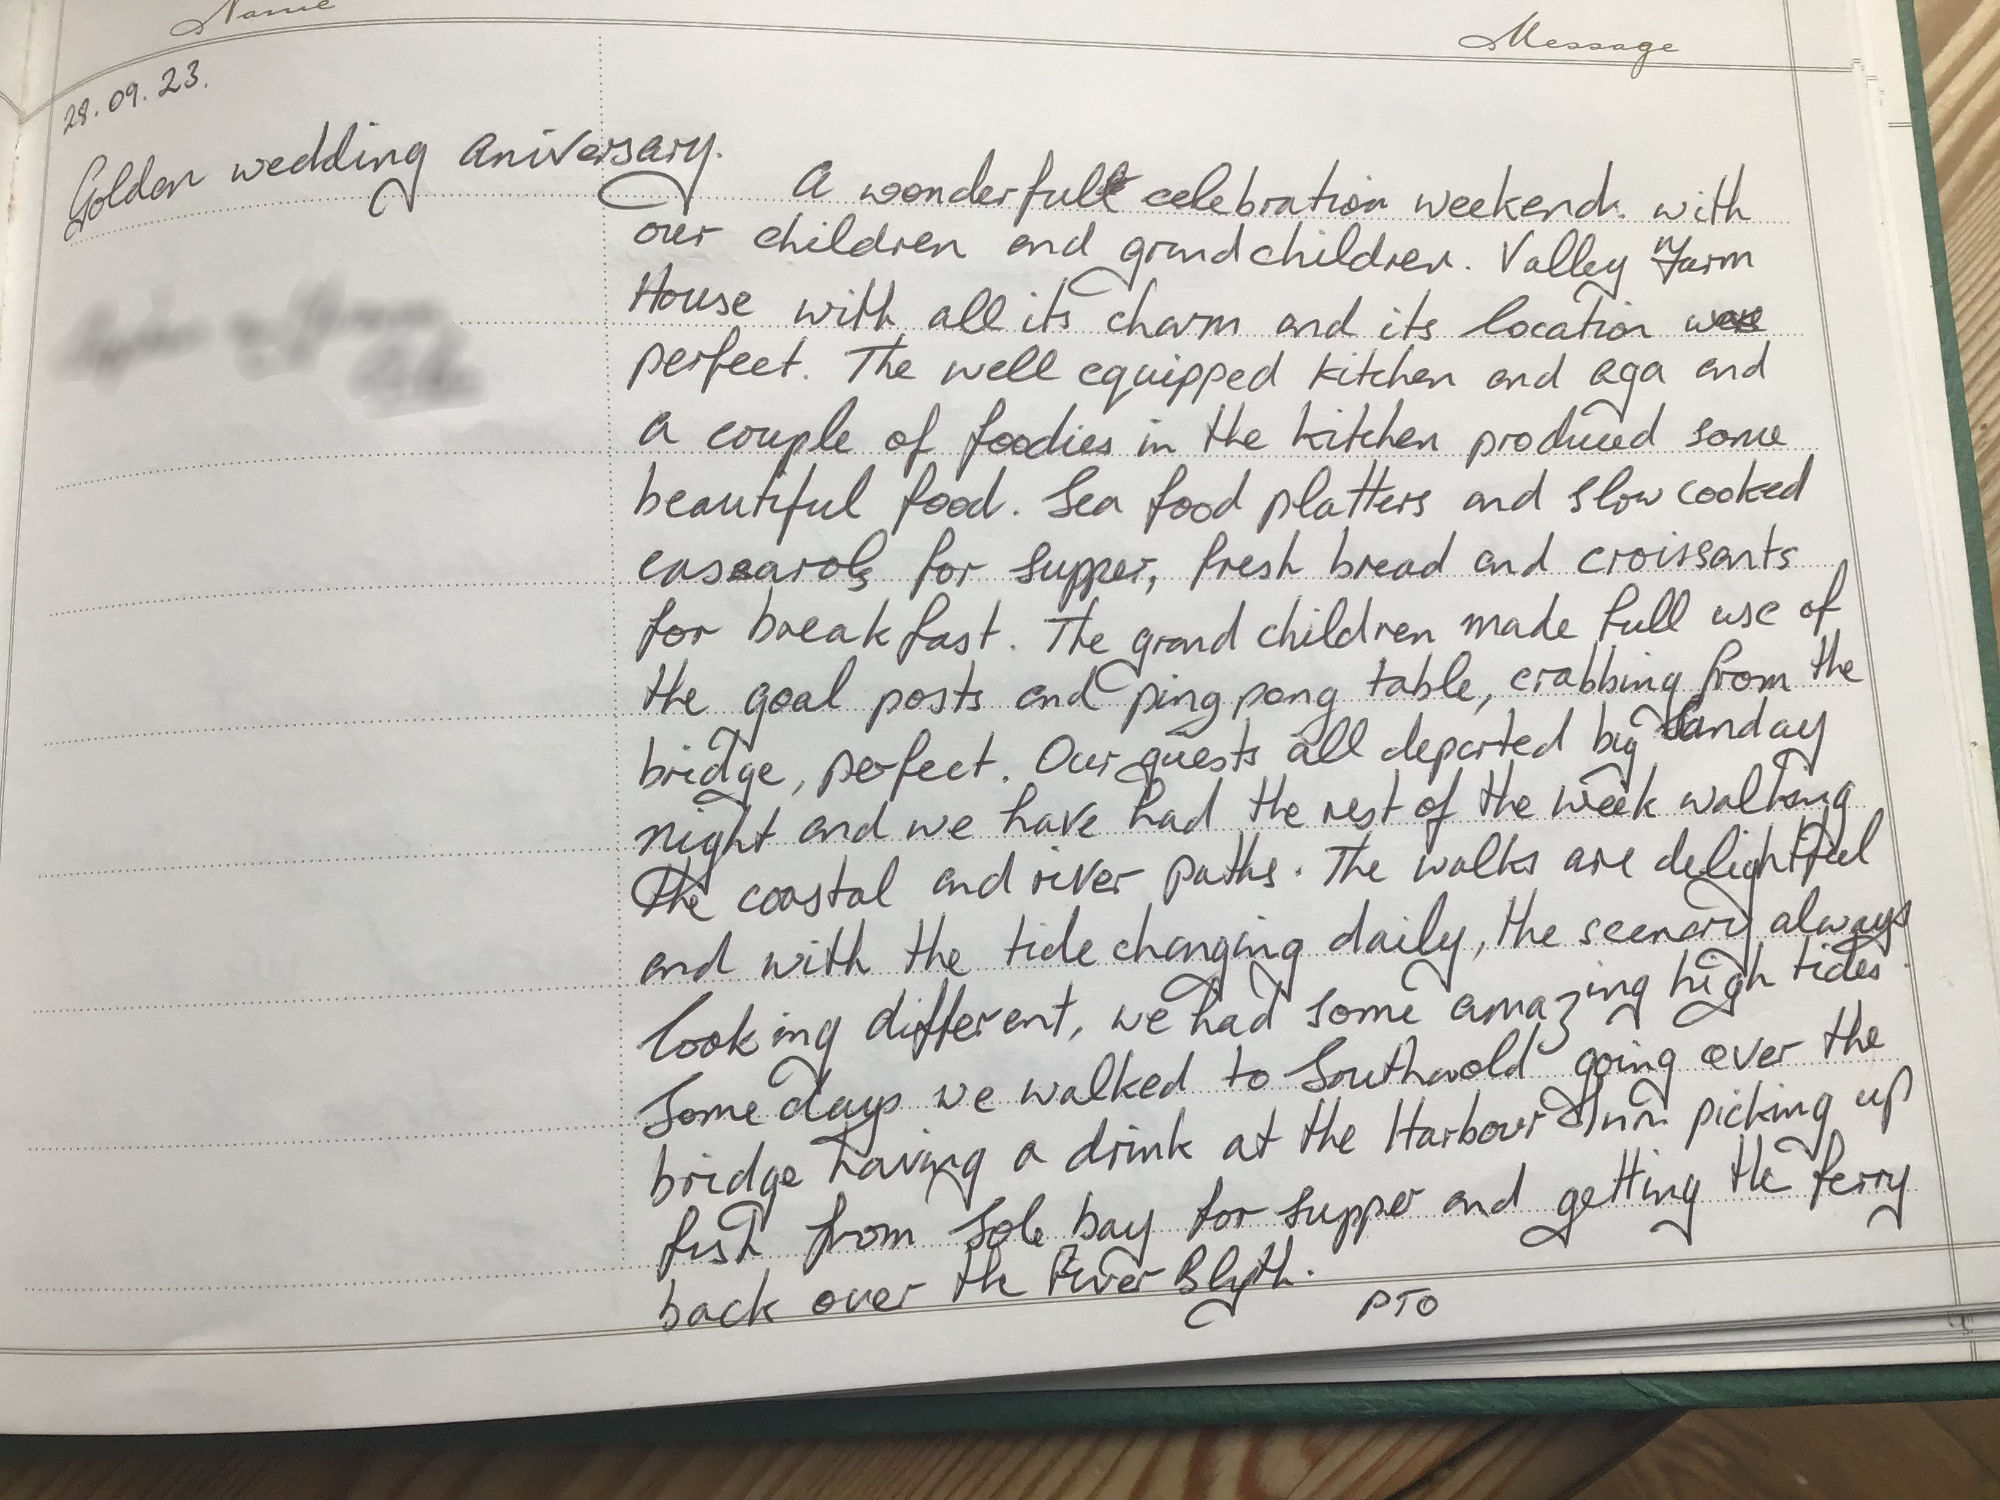 Name
Message
28.09.23.
Golden wedding aniversary.
A wonderful celebration weekend with
our children and grandchildren. Valley Farm
House with all its charm and its location were
perfect. The well equipped kitchen and aga and
a couple of foodies in the kitchen produced some
beautiful food. Sea food platters and slow cooked
cassarols for supper, fresh bread and croissants
for breakfast. The grand children made full use of
the goal posts and ping pong table, crabbing from the
bridge, perfect. Our guests all departed by Sunday
night and we have had the rest of the week walking
the coastal and river paths. The walks are delightful
and with the tide changing daily, the scenary always
looking different, we had some amazing high tides.
Some days we walked to Southwold going over the
bridge having a drink at the Harbour Inn picking up
fish from Sole bay for supper and getting the ferry
back over the River Blyth.
PTO